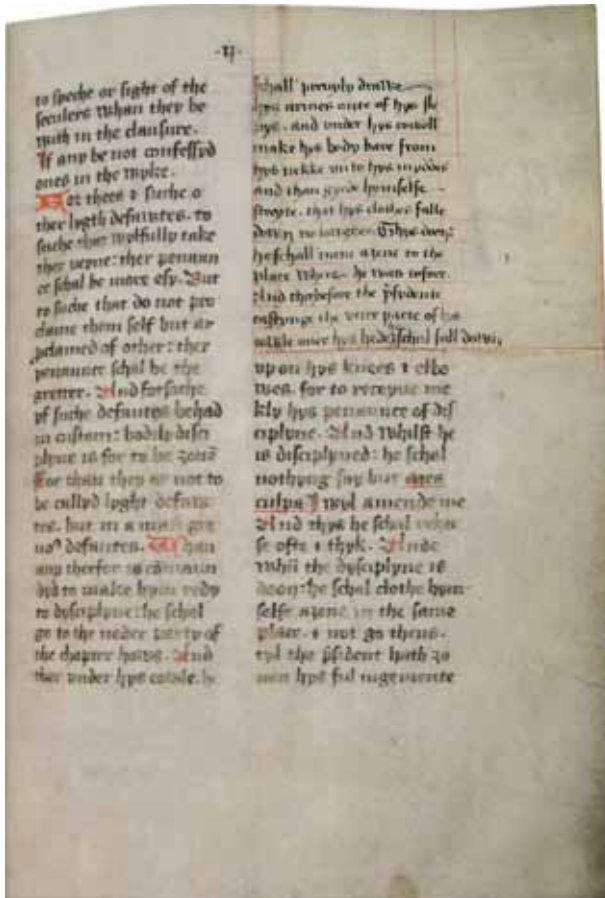 ·ij·
to speche or sight of the
seculers whan they be
with in the clausure.
If any be not confessyd
ones in the wyke.
For thees & suche o
ther lygth defautes. to
suche that wylfully take
ther veyne: ther penaun
ce schal be more esy. But
to suche that do not pro
clame them self but ar
pclamed of other: ther
penaunce schal be the
gretter. And for suche
yf suche defautes be had
in custom: bodily disci
plyne is for to be ȝouē
For than they ar not to
be callyd lyght defau
tes. but in a maner gre
uoꝰ defautes. Whan
any therfor is cōmaun
dyd to make hym redy
to dyscyplyne: he schal
go to the neder party of
the chapter hows. And
ther vnder hys cowle. he
schall preuyly drawe
hys armes oute of hys sle
uys. and vnder hys cowll
make hys body bare from
hys nekke vn to hys
and than gyrde hymselfe
streyte. that hys clothes falle
down no larger. Thys doon:
he schall turn aȝene to the
place where he was before.
And ther before the psydente
castynge the vtter parte of his
cowle ouer hys hede schal fall down
vpon hys knees & elbo
wes. for to receyue me
kly hys penaunce of dis
ciplyne. And whilst he
is disciplyned: he schal
nothyng say but mea
culpa I wyl amende me
And thys he schal reher
se ofte & thyk. Ande
whē the dyscyplyne is
doon: he schal clothe hym
selfe aȝene in the same
place. & not go thens.
tyl the psident hath ȝo
uen hys ful iugemente